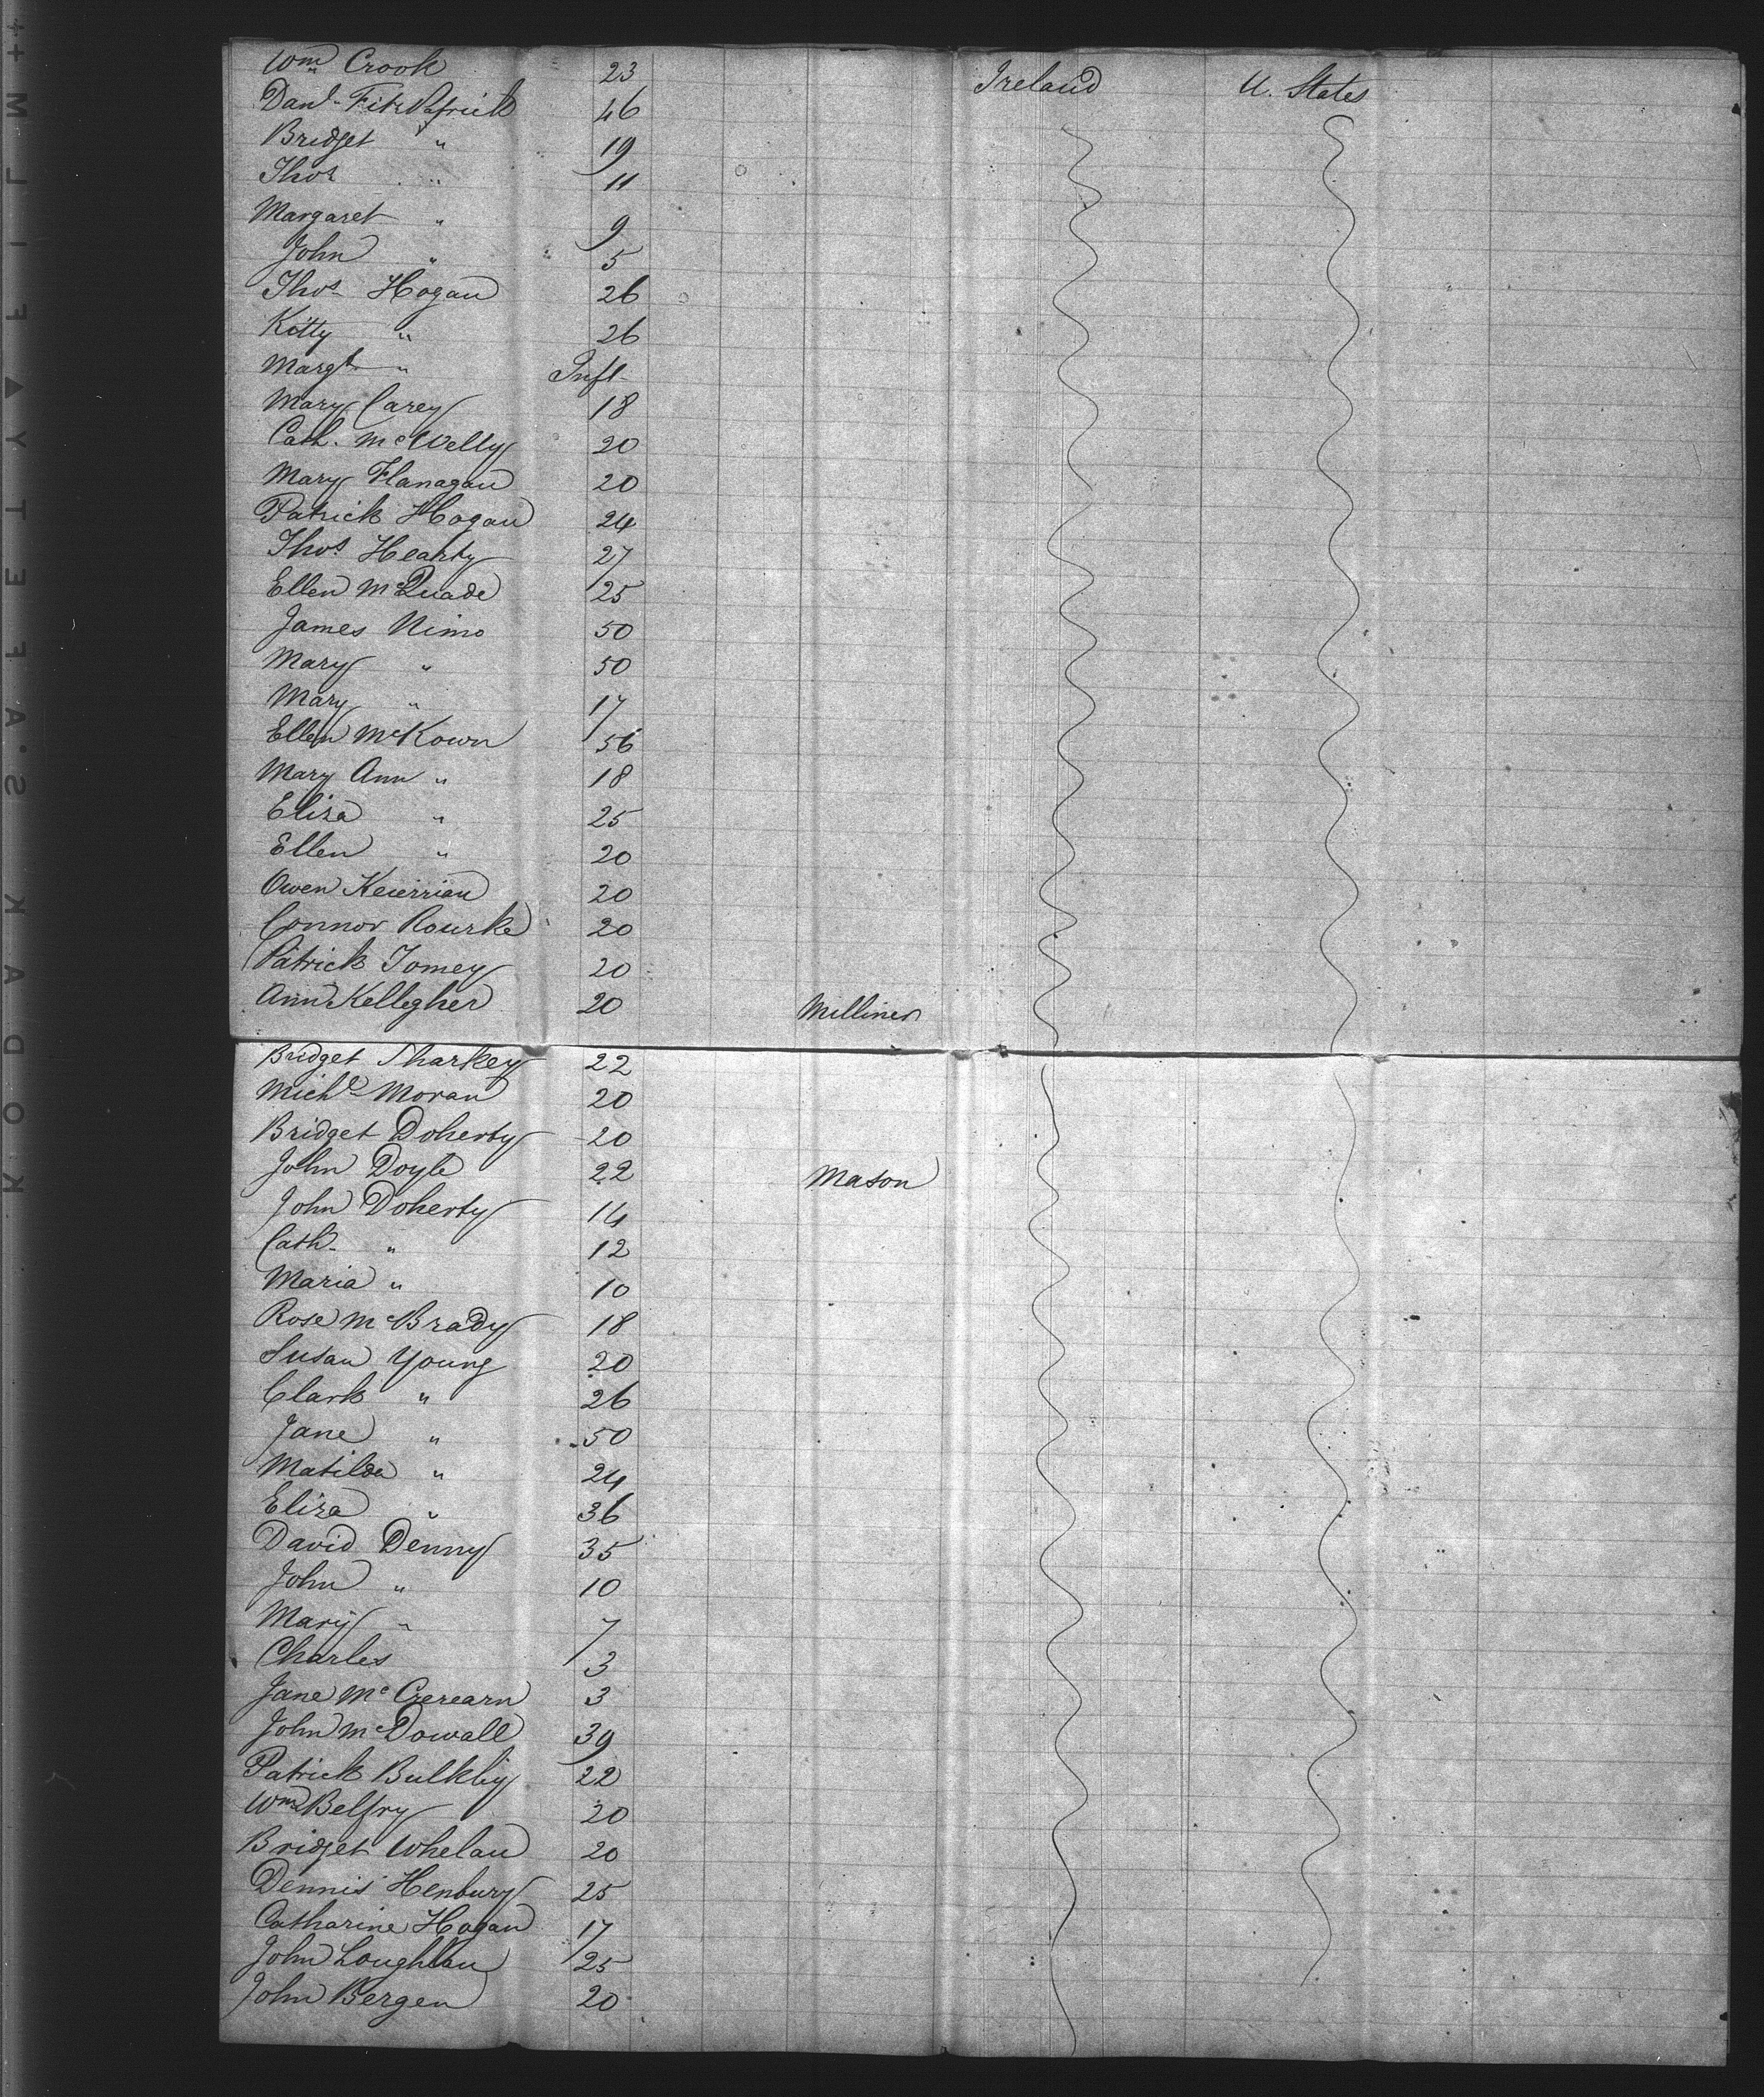 Wm Crook 23 Ireland U. States
Danl Fitz Patrick 46
Bridget " 19
Thos " 11
Margaret " 9
John " 5
Thos Hogan 26
Kitty " 26
Margt " Inft
Mary Carey 18
Cath. McWelly 20
Mary Flanagan 20
Patrick Hogan 24
Thos Hearty 27
Ellen McQuade 25
James Nimo 50
Mary " 50
Mary " 17
Ellen McKown 56
Mary Ann " 18
Eliza " 25
Ellen " 20
Owen 20
Connor Rourke 20
Patrick Tomey 20
Ann Kellegher 20 Milliner
Bridget Sharkey 22
Michl Moran 20
Bridget Doherty 20
John Doyle 22 Mason
John Doherty 14
Cath. " 12
Maria " 10
Rose McBrady 18
Susan Young 20
Clark " 26
Jane " 50
Matilda " 24
Eliza " 36
David Denny 35
John " 10
Mary " 7
Charles 3
Jane Mc 3
John McDowall 39
Patrick Bulkley 22
Wm Belfry 20
Bridget Whelan 20
Dennis Henbury 25
Catharine Hogan 17
John Loughlan 25
John Bergen 20
KODAK S.A.FETY FILM